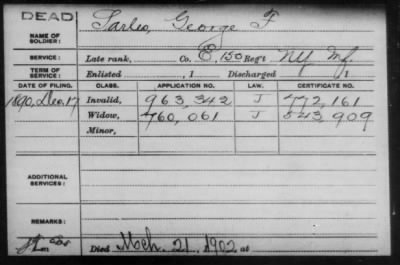 DEAD
NAME OF SOLDIER: Sarles, George F
SERVICE: Late rank, Co. E, 150 Reg't NY Inf.
TERM OF SERVICE: Enlisted , 1 Discharged , 1
DATE OF FILING. CLASS. APPLICATION NO. LAW. CERTIFICATE NO.
1890, Dec. 17 Invalid, 963,342 J 772,161
Widow, 760,061 J 543,909
Minor,
ADDITIONAL SERVICES:
REMARKS:
Died Mch. 21, 1902, at